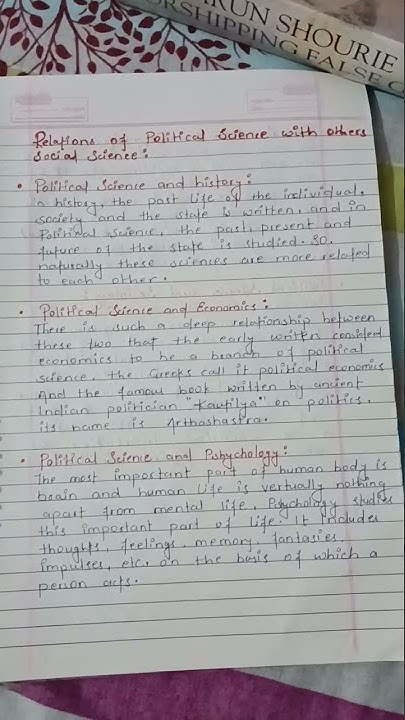 ARUN SHOURIE
WORSHIPPING FALSE
Relations of Political Science with others
Social Science:
• Political Science and history:
a history, the past life of the individual,
society and the state is written, and in
Political Science, the past, present and
future of the state is studied. So,
naturally these sciences are more related
to each other.
• Political Science and Economics:
There is such a deep relationship between
these two that the early writers considerd
economics to be a branch of political
science. the Greeks call it political economics
And the famous book written by ancient
Indian politician "Kautilya" on politics.
its name is Arthashastra.
• Political Science and Pshychology:
The most important part of human body is
brain and human life is vertually nothing
apart from mental life. Psychology studies
this important part of life. It includes
thoughts, feelings, memory, fantasies,
impulses, etc. on the basis of which a
person acts.